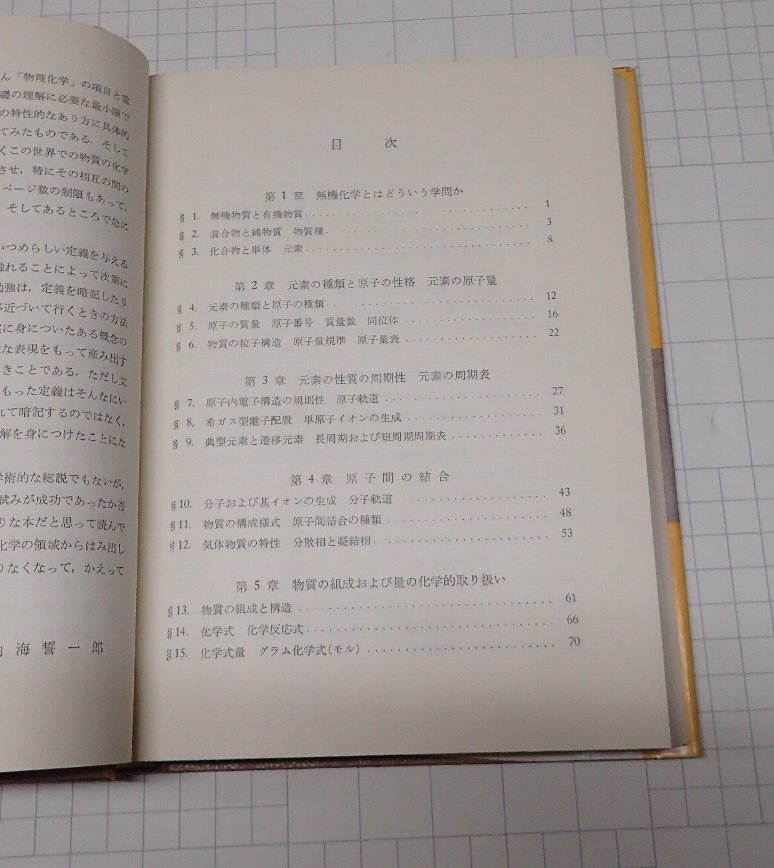 ん「物理化学」の項目と重
礎の理解に必要な最小限で
の特性的なあり方に具体的
てみたものである．そして
くこの世界での物質の化学
させ，特にその相互の間の
ページ数の制限もあって，
そしてあるところで急に
いつめらしい定義を与える
触れることによって次第に
勉強は，定義を暗記したり
近づいて行くときの方法
に身についたある概念の
な表現をもって産み出す
きことである．ただし文
もった定義はそんなにい
れて暗記するのではなく，
解を身につけたことにな
学術的な総説でもないが，
試みが成功であったか否
りな本だと思って読んで
化学の領域からはみ出し
りなくなって，かえって
海誓一郎
目次
第1章 無機化学とはどういう学問か
§1. 無機物質と有機物質 1
§2. 混合物と純物質 物質種 3
§3. 化合物と単体 元素 8
第2章 元素の種類と原子の性格 元素の原子量
§4. 元素の種類と原子の種類 12
§5. 原子の質量 原子番号 質量数 同位体 16
§6. 物質の粒子構造 原子量規準 原子量表 22
第3章 元素の性質の周期性 元素の周期表
§7. 原子内電子構造の規則性 原子軌道 27
§8. 希ガス型電子配置 単原子イオンの生成 31
§9. 典型元素と遷移元素 長周期および短周期周期表 36
第4章 原子間の結合
§10. 分子および基イオンの生成 分子軌道 43
§11. 物質の構成様式 原子間結合の種類 48
§12. 気体物質の特性 分散相と凝縮相 53
第5章 物質の組成および量の化学的取り扱い
§13. 物質の組成と構造 61
§14. 化学式 化学反応式 66
§15. 化学式量 グラム化学式(モル) 70